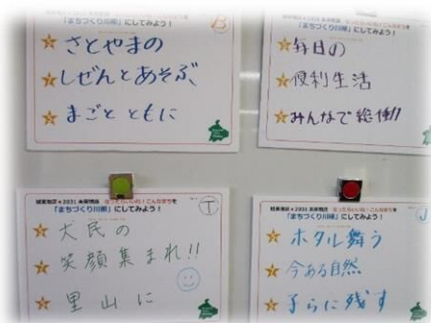 「まちづくり川柳」にしてみよう！
B
さとやまの
しぜんとあそぶ
まごと ともに
「まちづくり川柳」にしてみよう！
毎日の
便利生活
みんなで総働!!
未来物語 なったらいいね！こんなまちを
「まちづくり川柳」にしてみよう！
T
大民の
笑顔集まれ!!
里山に
未来物語 なったらいいね！こんなまちを
「まちづくり川柳」にしてみよう！
J
ホタル舞う
今ある自然
子らに残す